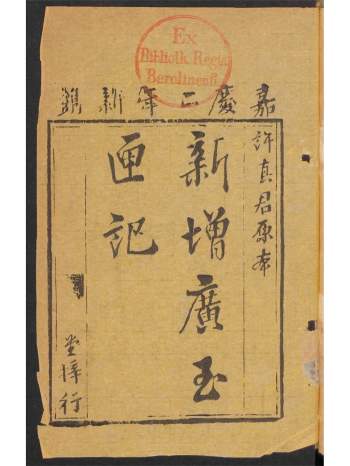 Ex
Biblioth. Regia
Berolinensi
嘉慶二年新鐫
許真君原本
新增廣玉
匣記
堂梓行